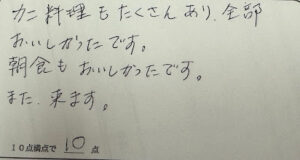 カニ料理もたくさんあり、全部
おいしかったです。
朝食もおいしかったです。
また、来ます。
10点満点で 10 点